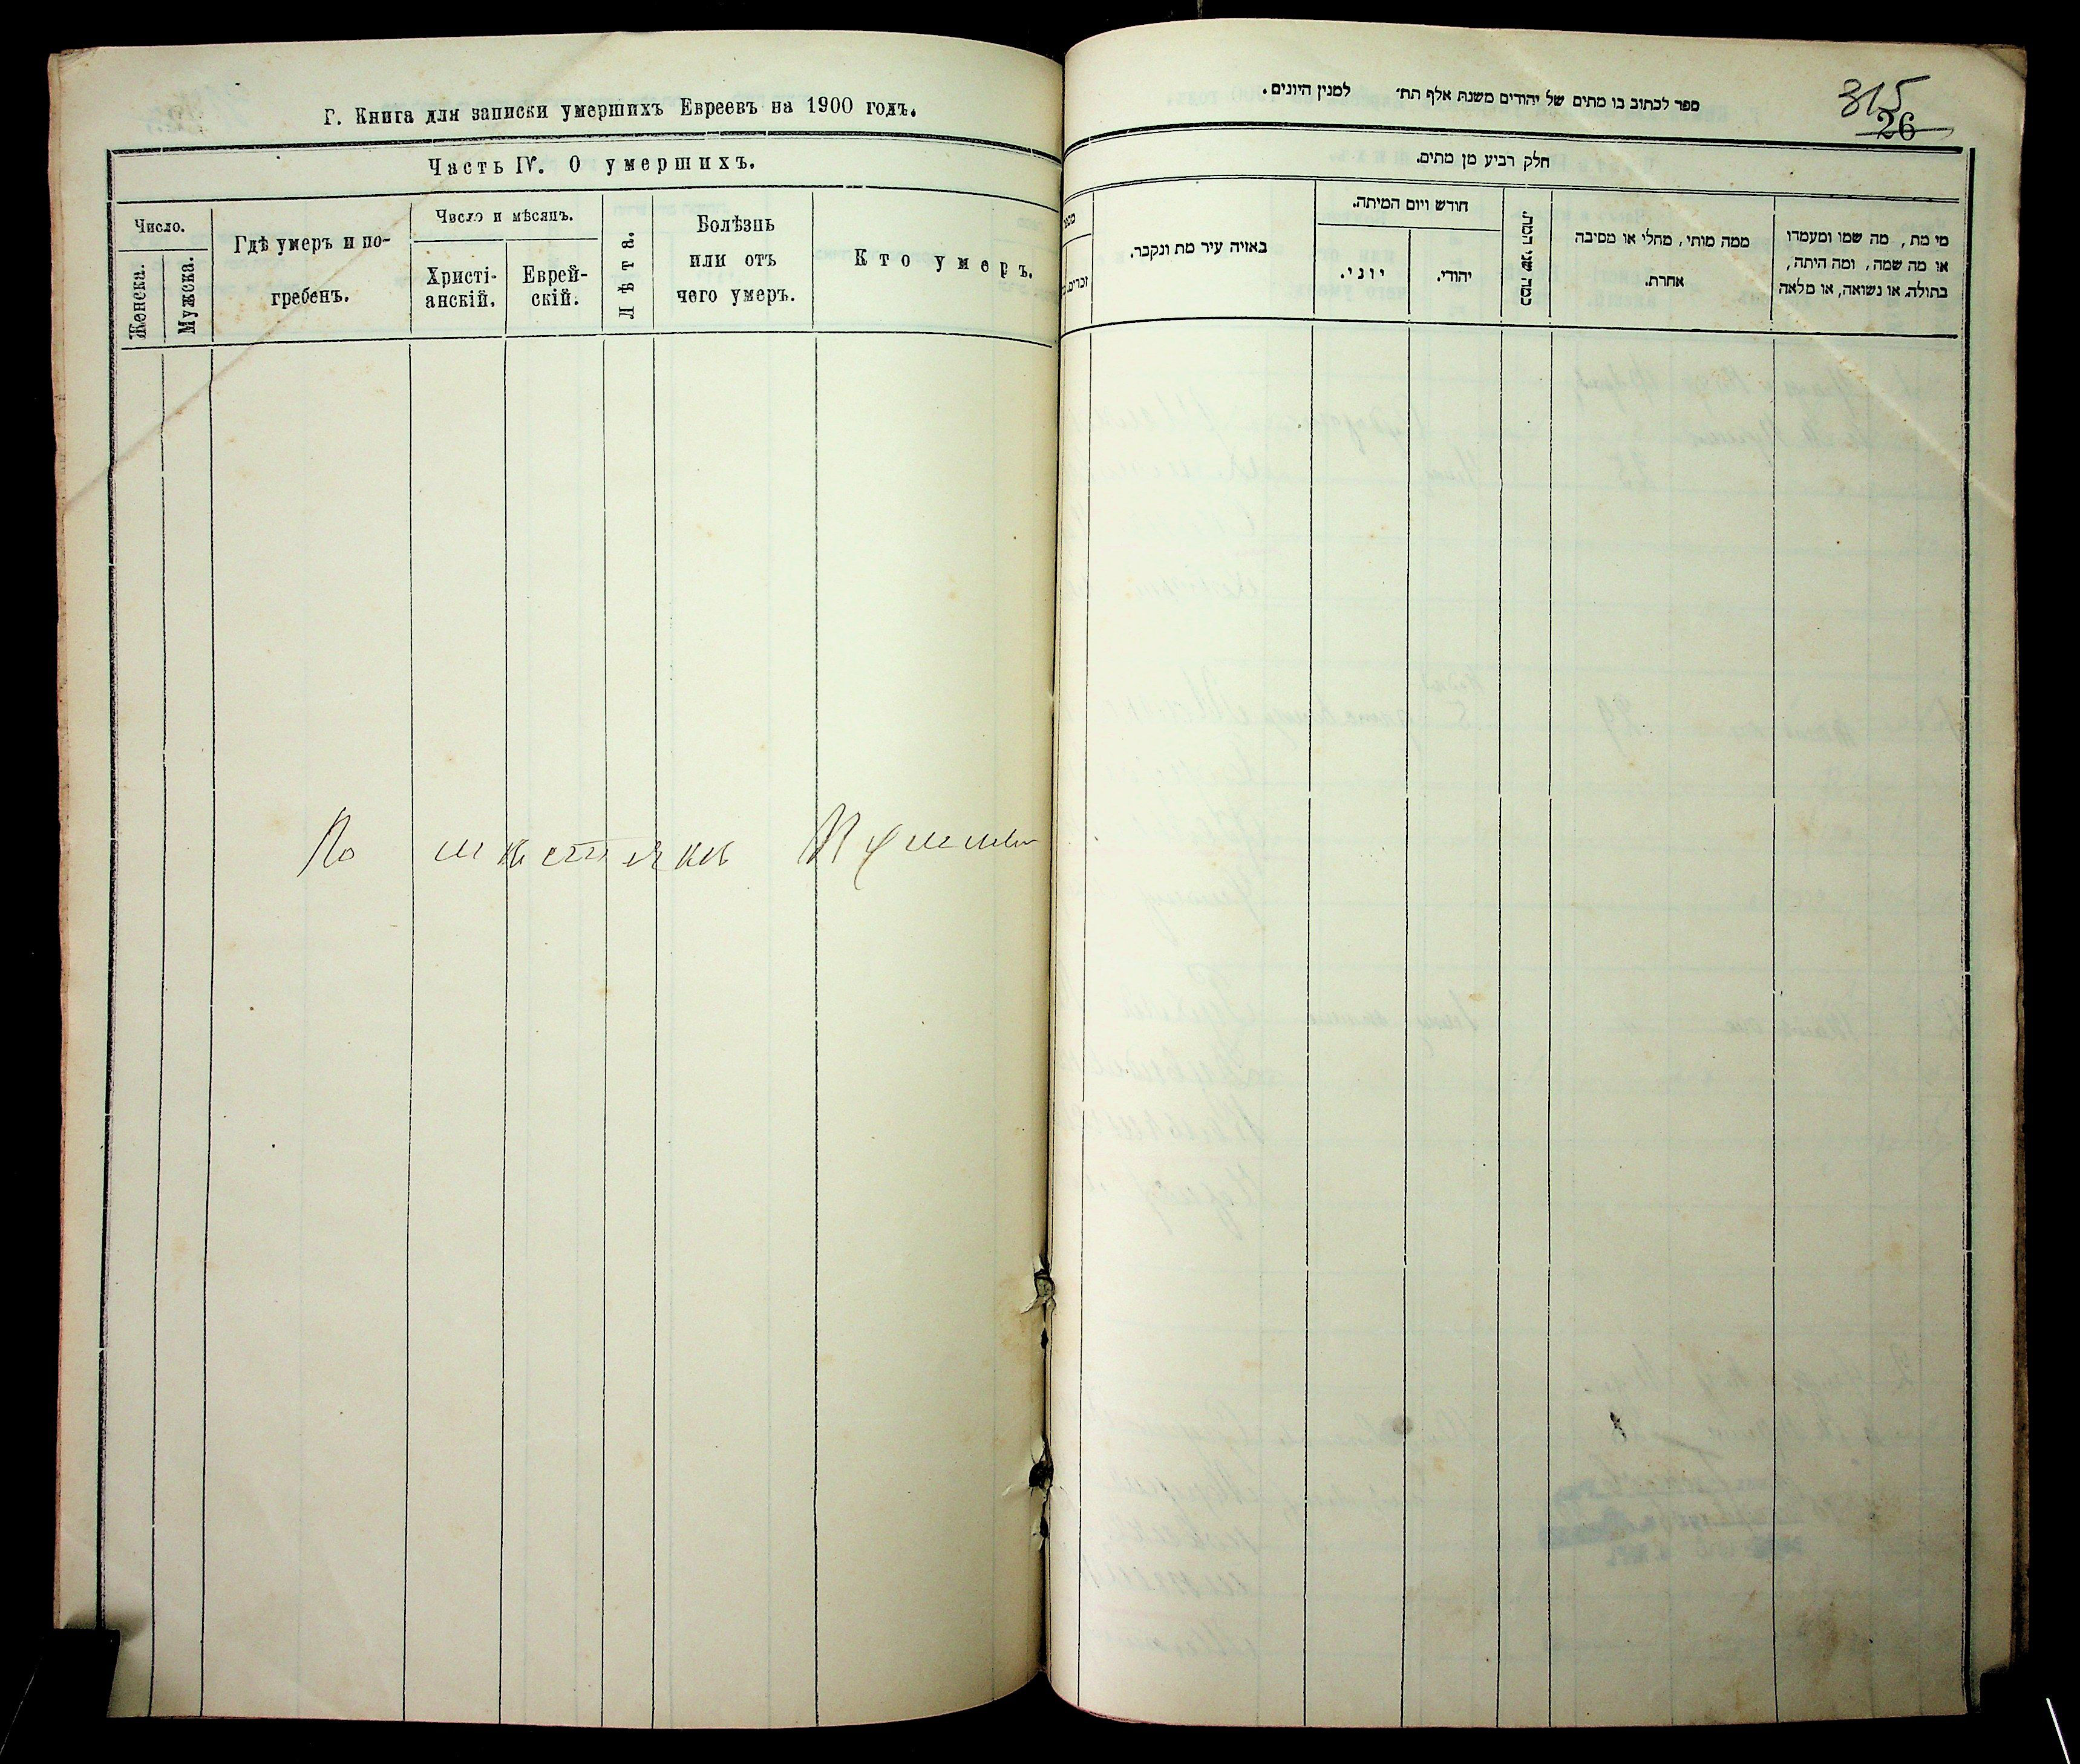 Г. Книга для записки умершихъ Евреевъ на 1900 годъ.
Часть IV. О умершихъ.
Число.
Женска.
Мужска.
Гдѣ умеръ и по-
гребенъ.
Число и мѣсяцъ.
Христі-
анскій.
Еврей-
скій.
Лѣта.
Болѣзнь
или отъ
чего умеръ.
Кто умеръ.
По мѣстечку
315
26
ספר לכתוב בו מתים של יהודים משנת אלף תת׳ למנין היונים.
חלק רביע מן מתים.
מי מת, מה שמו ומעמדו
או מה שמה, ומה היתה,
בתולה או נשואה, או מלאה
ממה מותי, מחלי או מסיבה
אחרת.
כמה שני המת.
חודש ויום המיתה.
יהודי.
יוני.
באיזה עיר מת ונקבר.